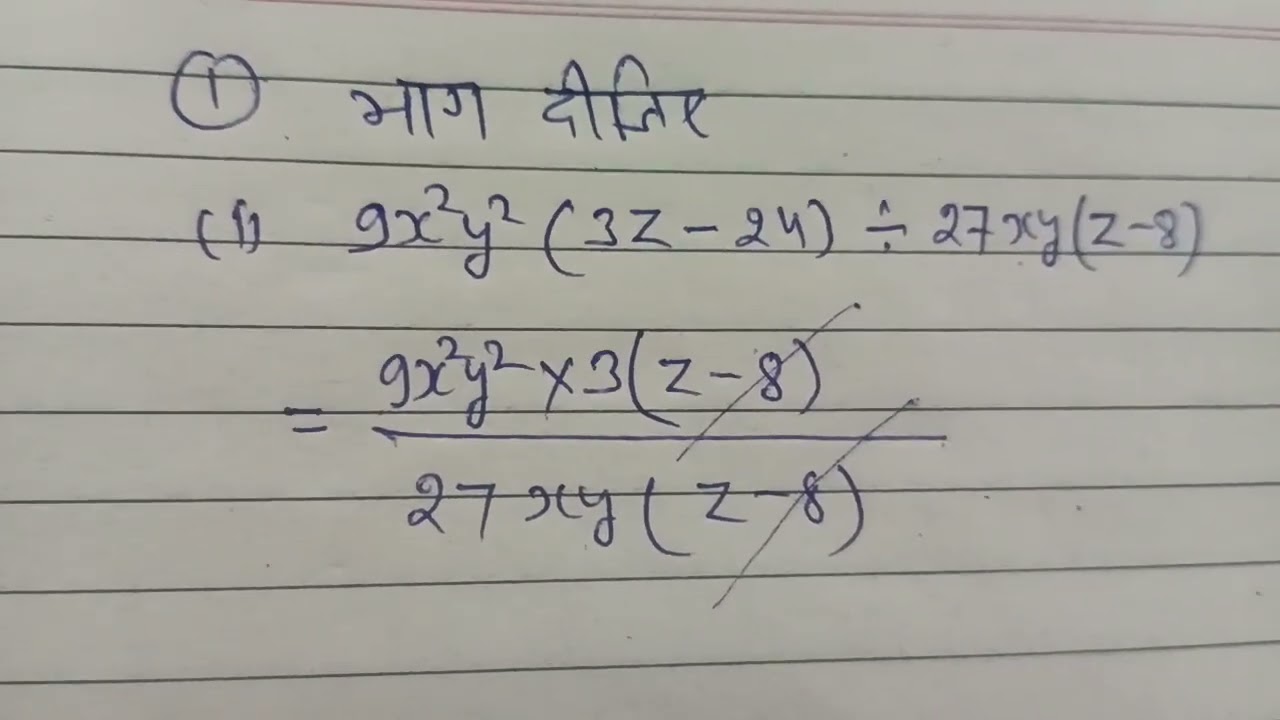 ① भाग दीजिए
(i) 9x²y² (3z - 24) ÷ 27xy(z-8)
= 9x²y² × 3(z - 8)
27xy(z - 8)